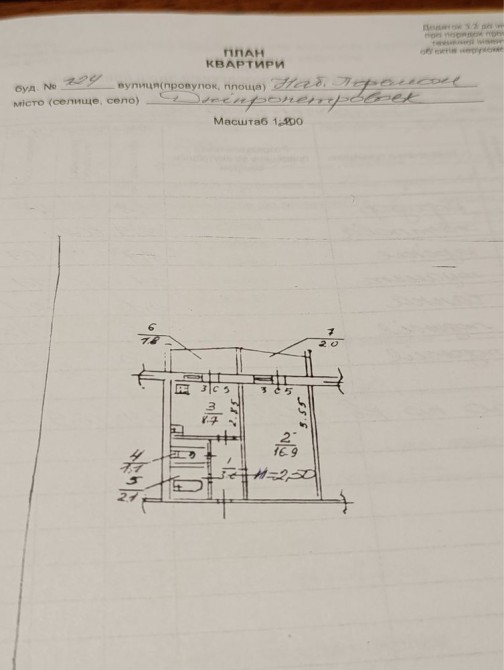 Додаток 3.2 до
про порядок про
технічної
об'єктів нерухомо
ПЛАН
КВАРТИРИ
буд. № 124 вулиця(провулок, площа) Наб. Перемоги
місто (селище, село) Дніпропетровськ
Масштаб 1:200
6
1.8
7
2.0
3 С 5
3 С 5
3
8.7
2.85
5.55
2
16.9
4
1.1
5
2.1
1
H=2,50